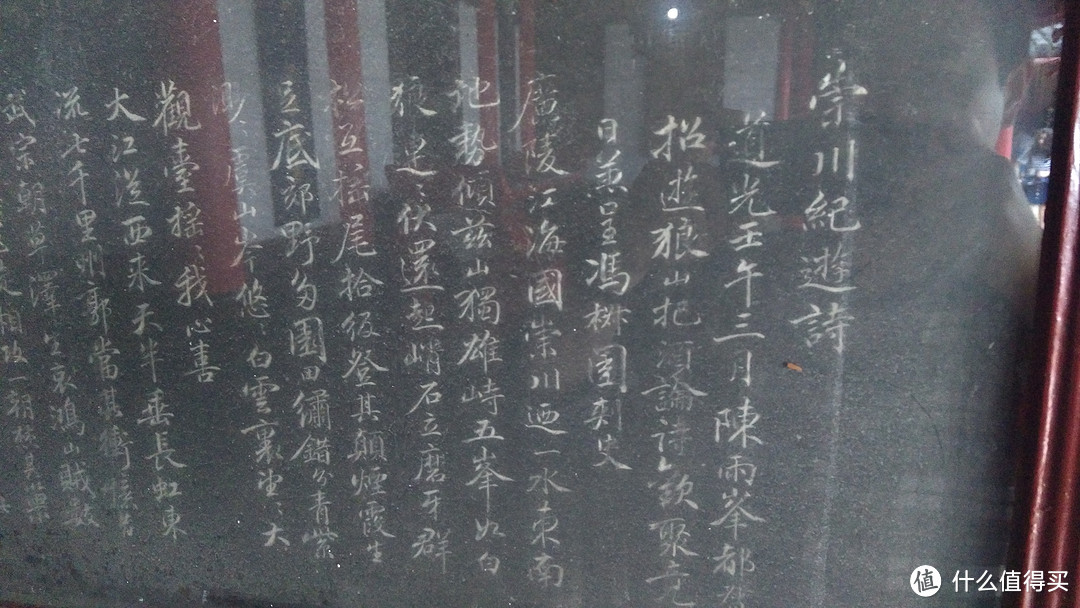 崇川紀遊詩
道光壬午三月陳雨峯都
招遊狼山把酒論詩歡聚竟
日并呈馮樹圃刺史
廣陵江海國崇川迺一水東南
地勢傾茲山獨雄峙五峯如白
狼連〻伏還起峭石立磨牙群
松互搖尾拾级登其顛煙霞生
足底郊野多園田繡錯分青紫
虞山岑悠〻白雲裏望〻大
觀臺搖〻我心喜
大江從西來天半垂長虹東
流七千里州郭當其衝
武宗朝草澤哀鴻山賊
相攻一朝
值 什么值得买